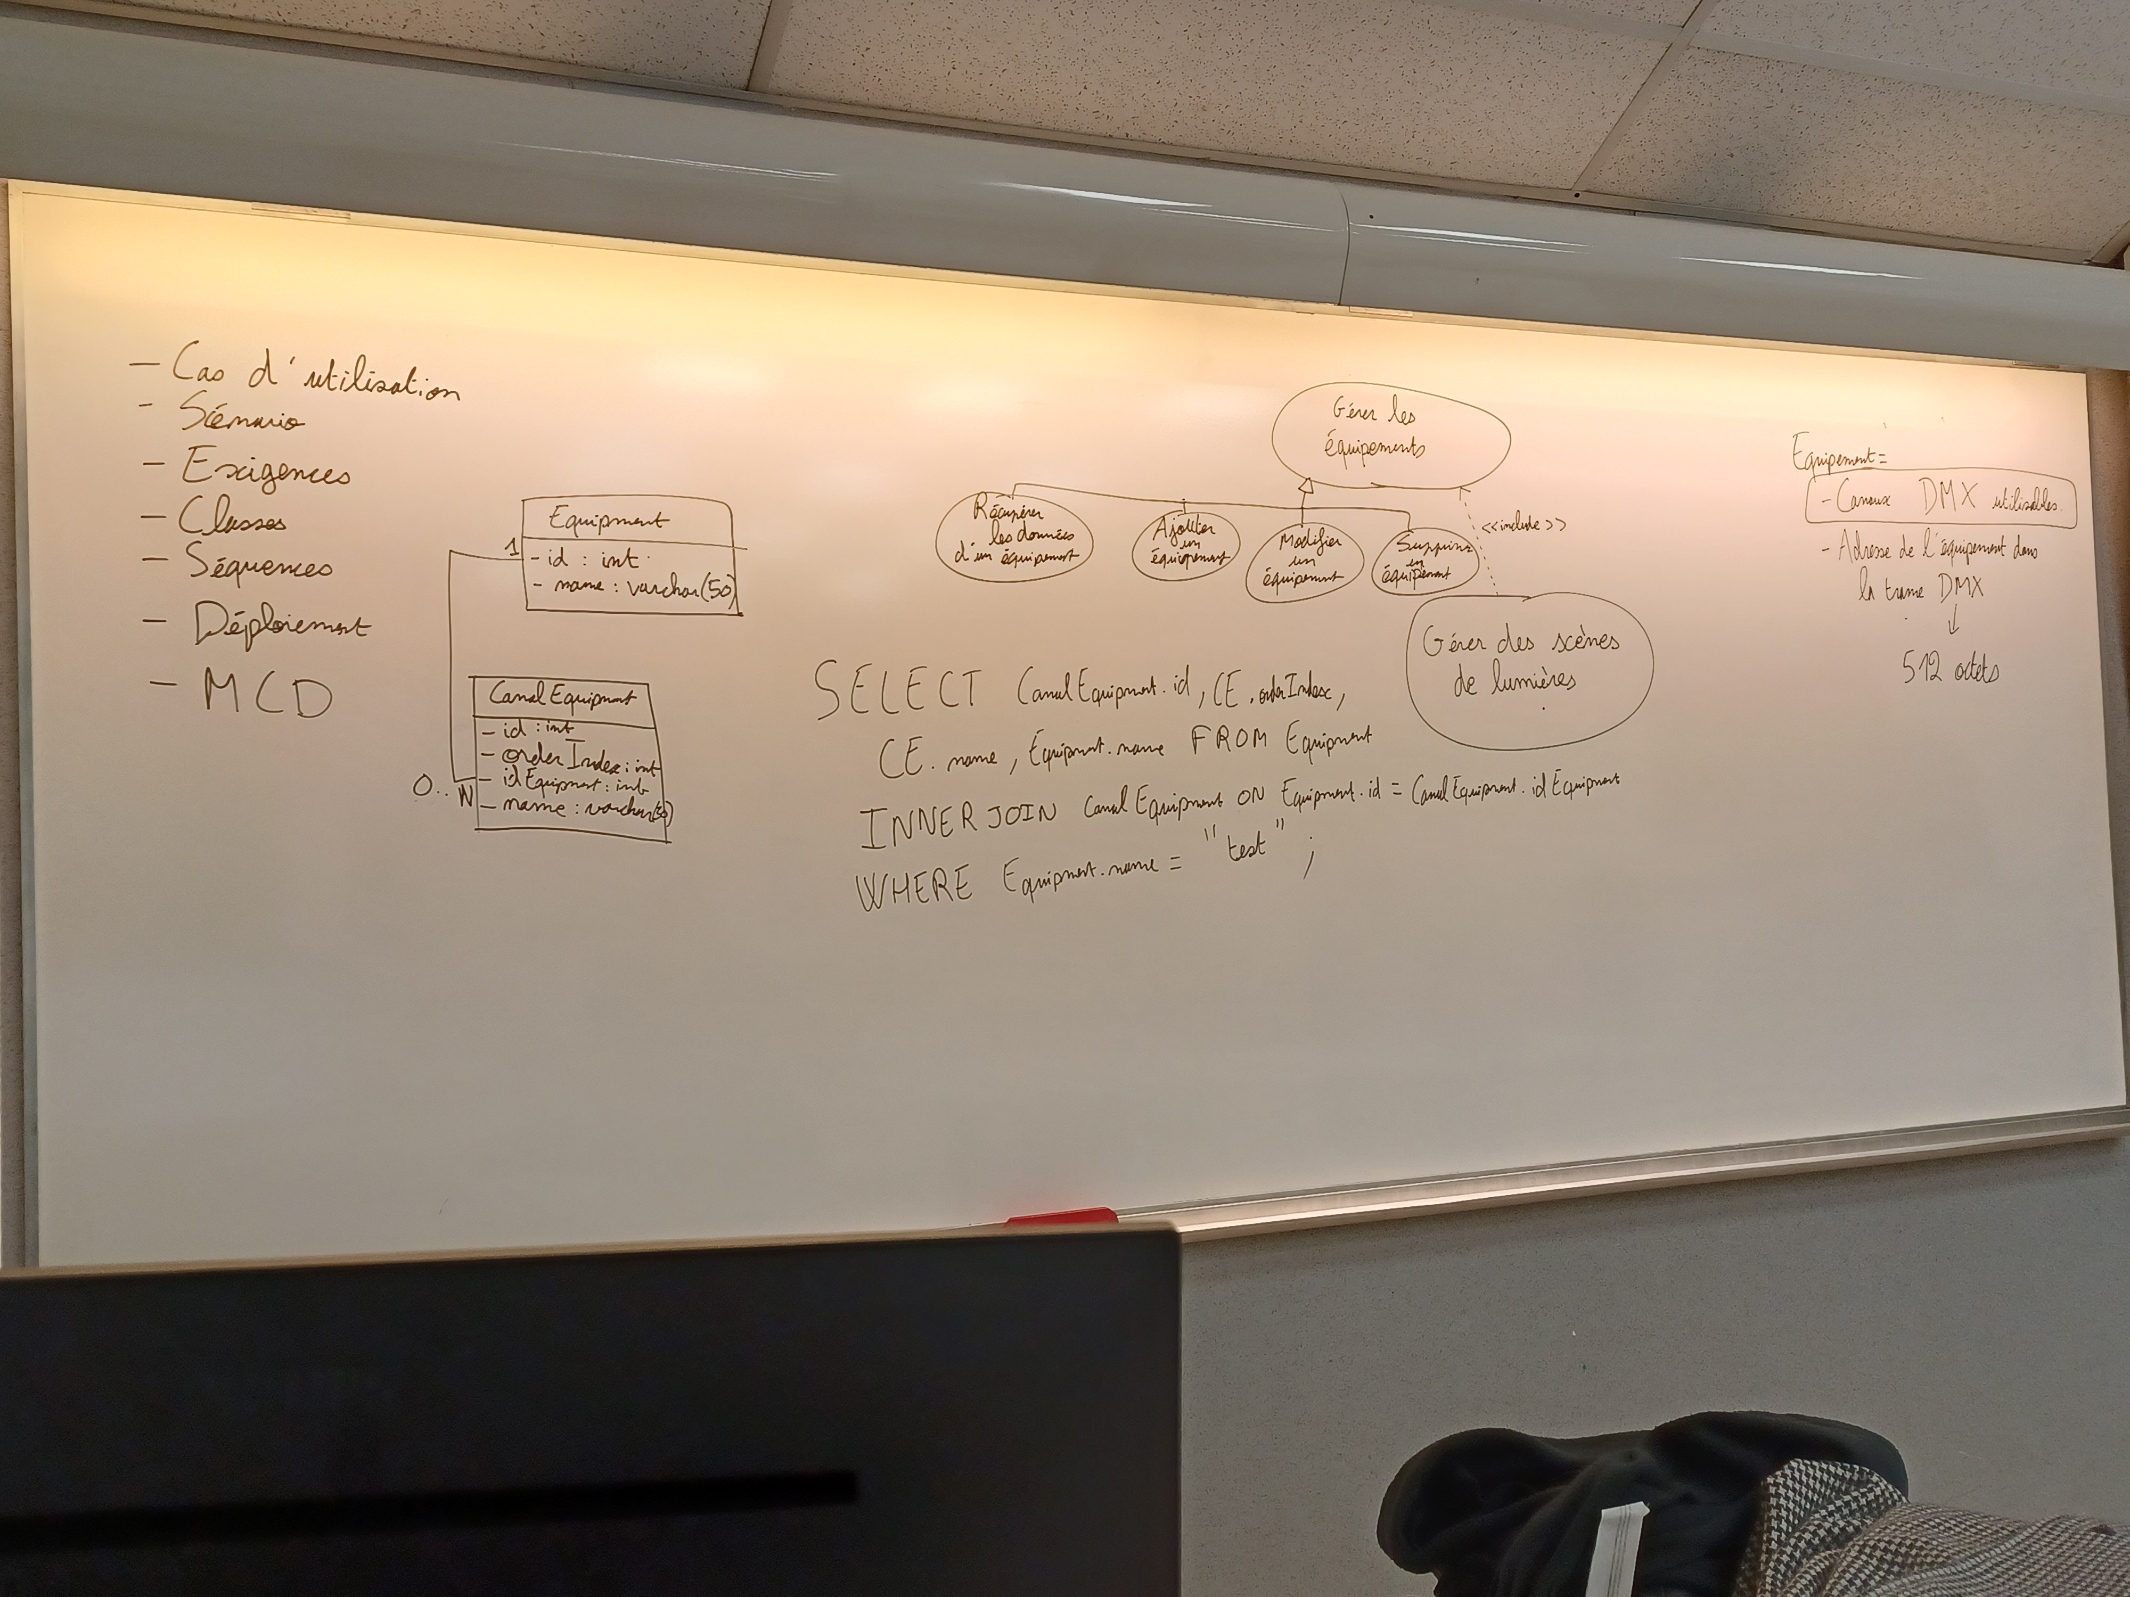 - Cas d'utilisation
- Scénario
- Exigences
- Classes
- Séquences
- Déploiement
- MCD
Equipment
- id : int
- name : varchar(50)
1
Canal Equipment
- id : int
- order Index : int
- idEquipment : int
- name : varchar(50)
0..N
Gérer les
équipements
Récupérer
les données
d'un équipement
Ajouter
un
équipement
Modifier
un
équipement
Supprimer
un
équipement
<<include>>
Gérer des scènes
de lumières
SELECT Canal Equipment.id, CE.orderIndex,
CE.name, Equipment.name FROM Equipment
INNER JOIN Canal Equipment ON Equipment.id = Canal Equipment.idEquipment
WHERE Equipment.name = "test" ;
Equipement =
- Canaux DMX utilisables.
- Adresse de l'équipement dans
la trame DMX
512 octets